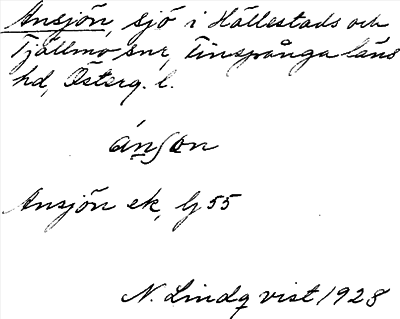 Ansjön, sjö i Hällestads och
Tjällmo snr, Finspånga läns
hd, Österg. l.
ánʃɷn
Ansjön ek, bl 55
N. Lindqvist 1928